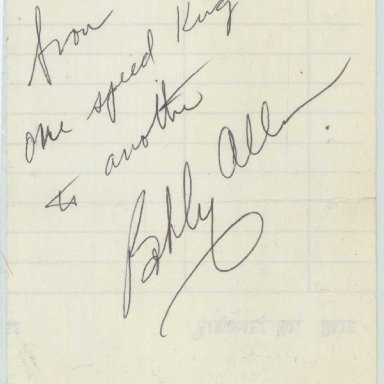 from
one speed King
to another
Bobby Allen